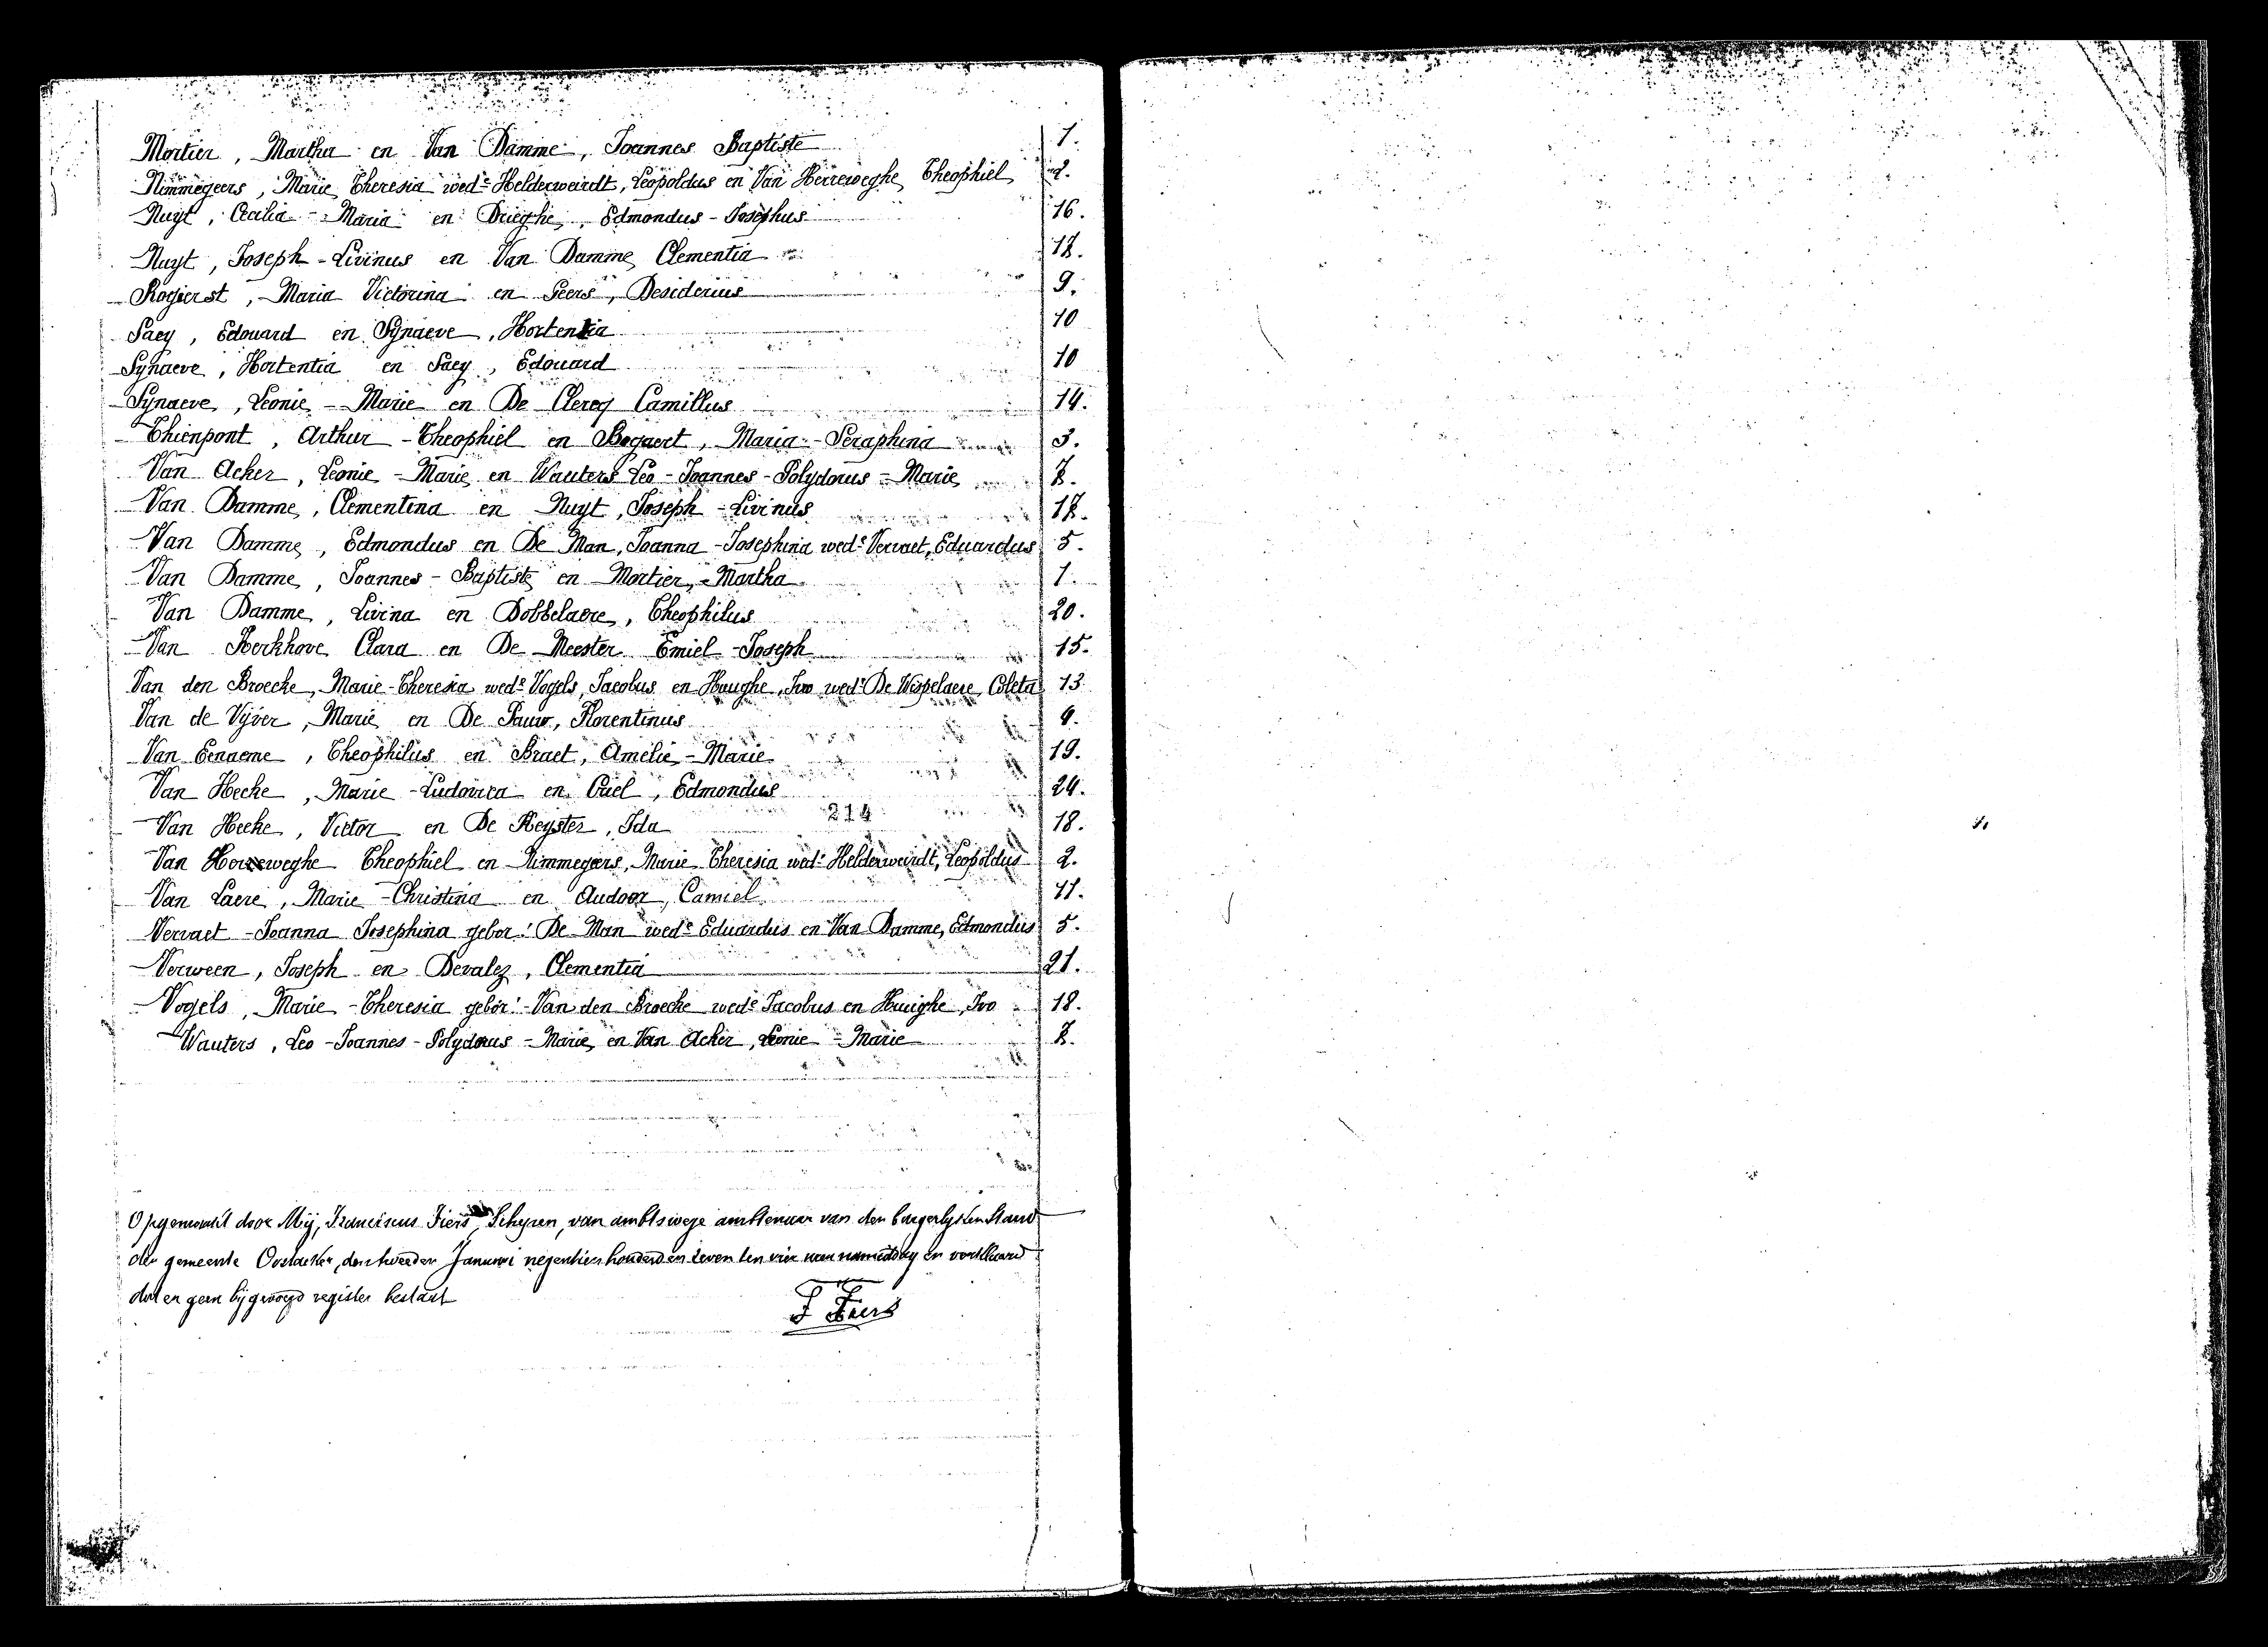 Mortier, Martha en Van Damme, Joannes Baptiste 1.
Nimmegeers, Marie Theresia wede Helderweirdt, Leopoldus en Van Herreweghe Theophiel 2.
Nuyt, Cecilia - Maria en Drieghe, Edmondus - Josephus 16.
Nuyt, Joseph - Livinus en Van Damme Clementia 17.
Rogierst, Maria Victorina en Peers, Desiderius 9.
Saey, Edouard en Synaeve, Hortentia 10
Synaeve, Hortentia en Saey, Edouard 10
Synaeve, Leonie - Marie en De Clercq Camillus 14.
Thienpont, Arthur - Theophiel en Bogaert, Maria - Seraphina 3.
Van Acker, Leonie - Marie en Wauters Leo - Joannes - Polydorus - Marie 7.
Van Damme, Clementina en Nuyt, Joseph - Livinus 17.
Van Damme, Edmondus en De Man, Joanna - Josephina wede Vervaet, Eduardus 5.
Van Damme, Joannes - Baptiste en Mortier, Martha 1.
Van Damme, Livina en Dobbelaere, Theophilus 20.
Van Kerkhove Clara en De Meester Emiel - Joseph 15.
Van den Broecke, Marie - Theresia wede Vogels, Jacobus en Huughe, Ivo wedr De Wispelaere, Coleta 13
Van de Vijver, Marie en De Pauw, Florentinus 4.
Van Eenaeme, Theophilus en Braet, Amelie - Marie 19.
Van Hecke, Marie - Ludovica en Criel, Edmondus 24.
214
Van Hecke, Victor en De Keyster, Ida 18.
Van Herreweghe Theophiel en Nimmegeers, Marie Theresia wede Helderweirdt, Leopoldus 2.
Van Laere, Marie - Christina en Audoor, Camiel 11.
Vervaet - Joanna Josephina gebor: De Man wede Eduardus en Van Damme, Edmondus 5.
Verween, Joseph en Devalez, Clementia 21.
Vogels, Marie - Theresia gebor: Van den Broecke wede Jacobus en Huughe, Ivo 18.
Wauters, Leo - Joannes - Polydorus - Marie, en Van Acker, Leonie - Marie 7.
Opgemaakt door Mij, Franciscus Fiers, Schepen, van ambtswege ambtenaar van den burgerlijken stand
der gemeente Oostacker, den tweeden Januari negentien honderd en zeven ten vier uren namiddag en verklaard
dat er geen bijgevoegd register bestaat
F Fiers